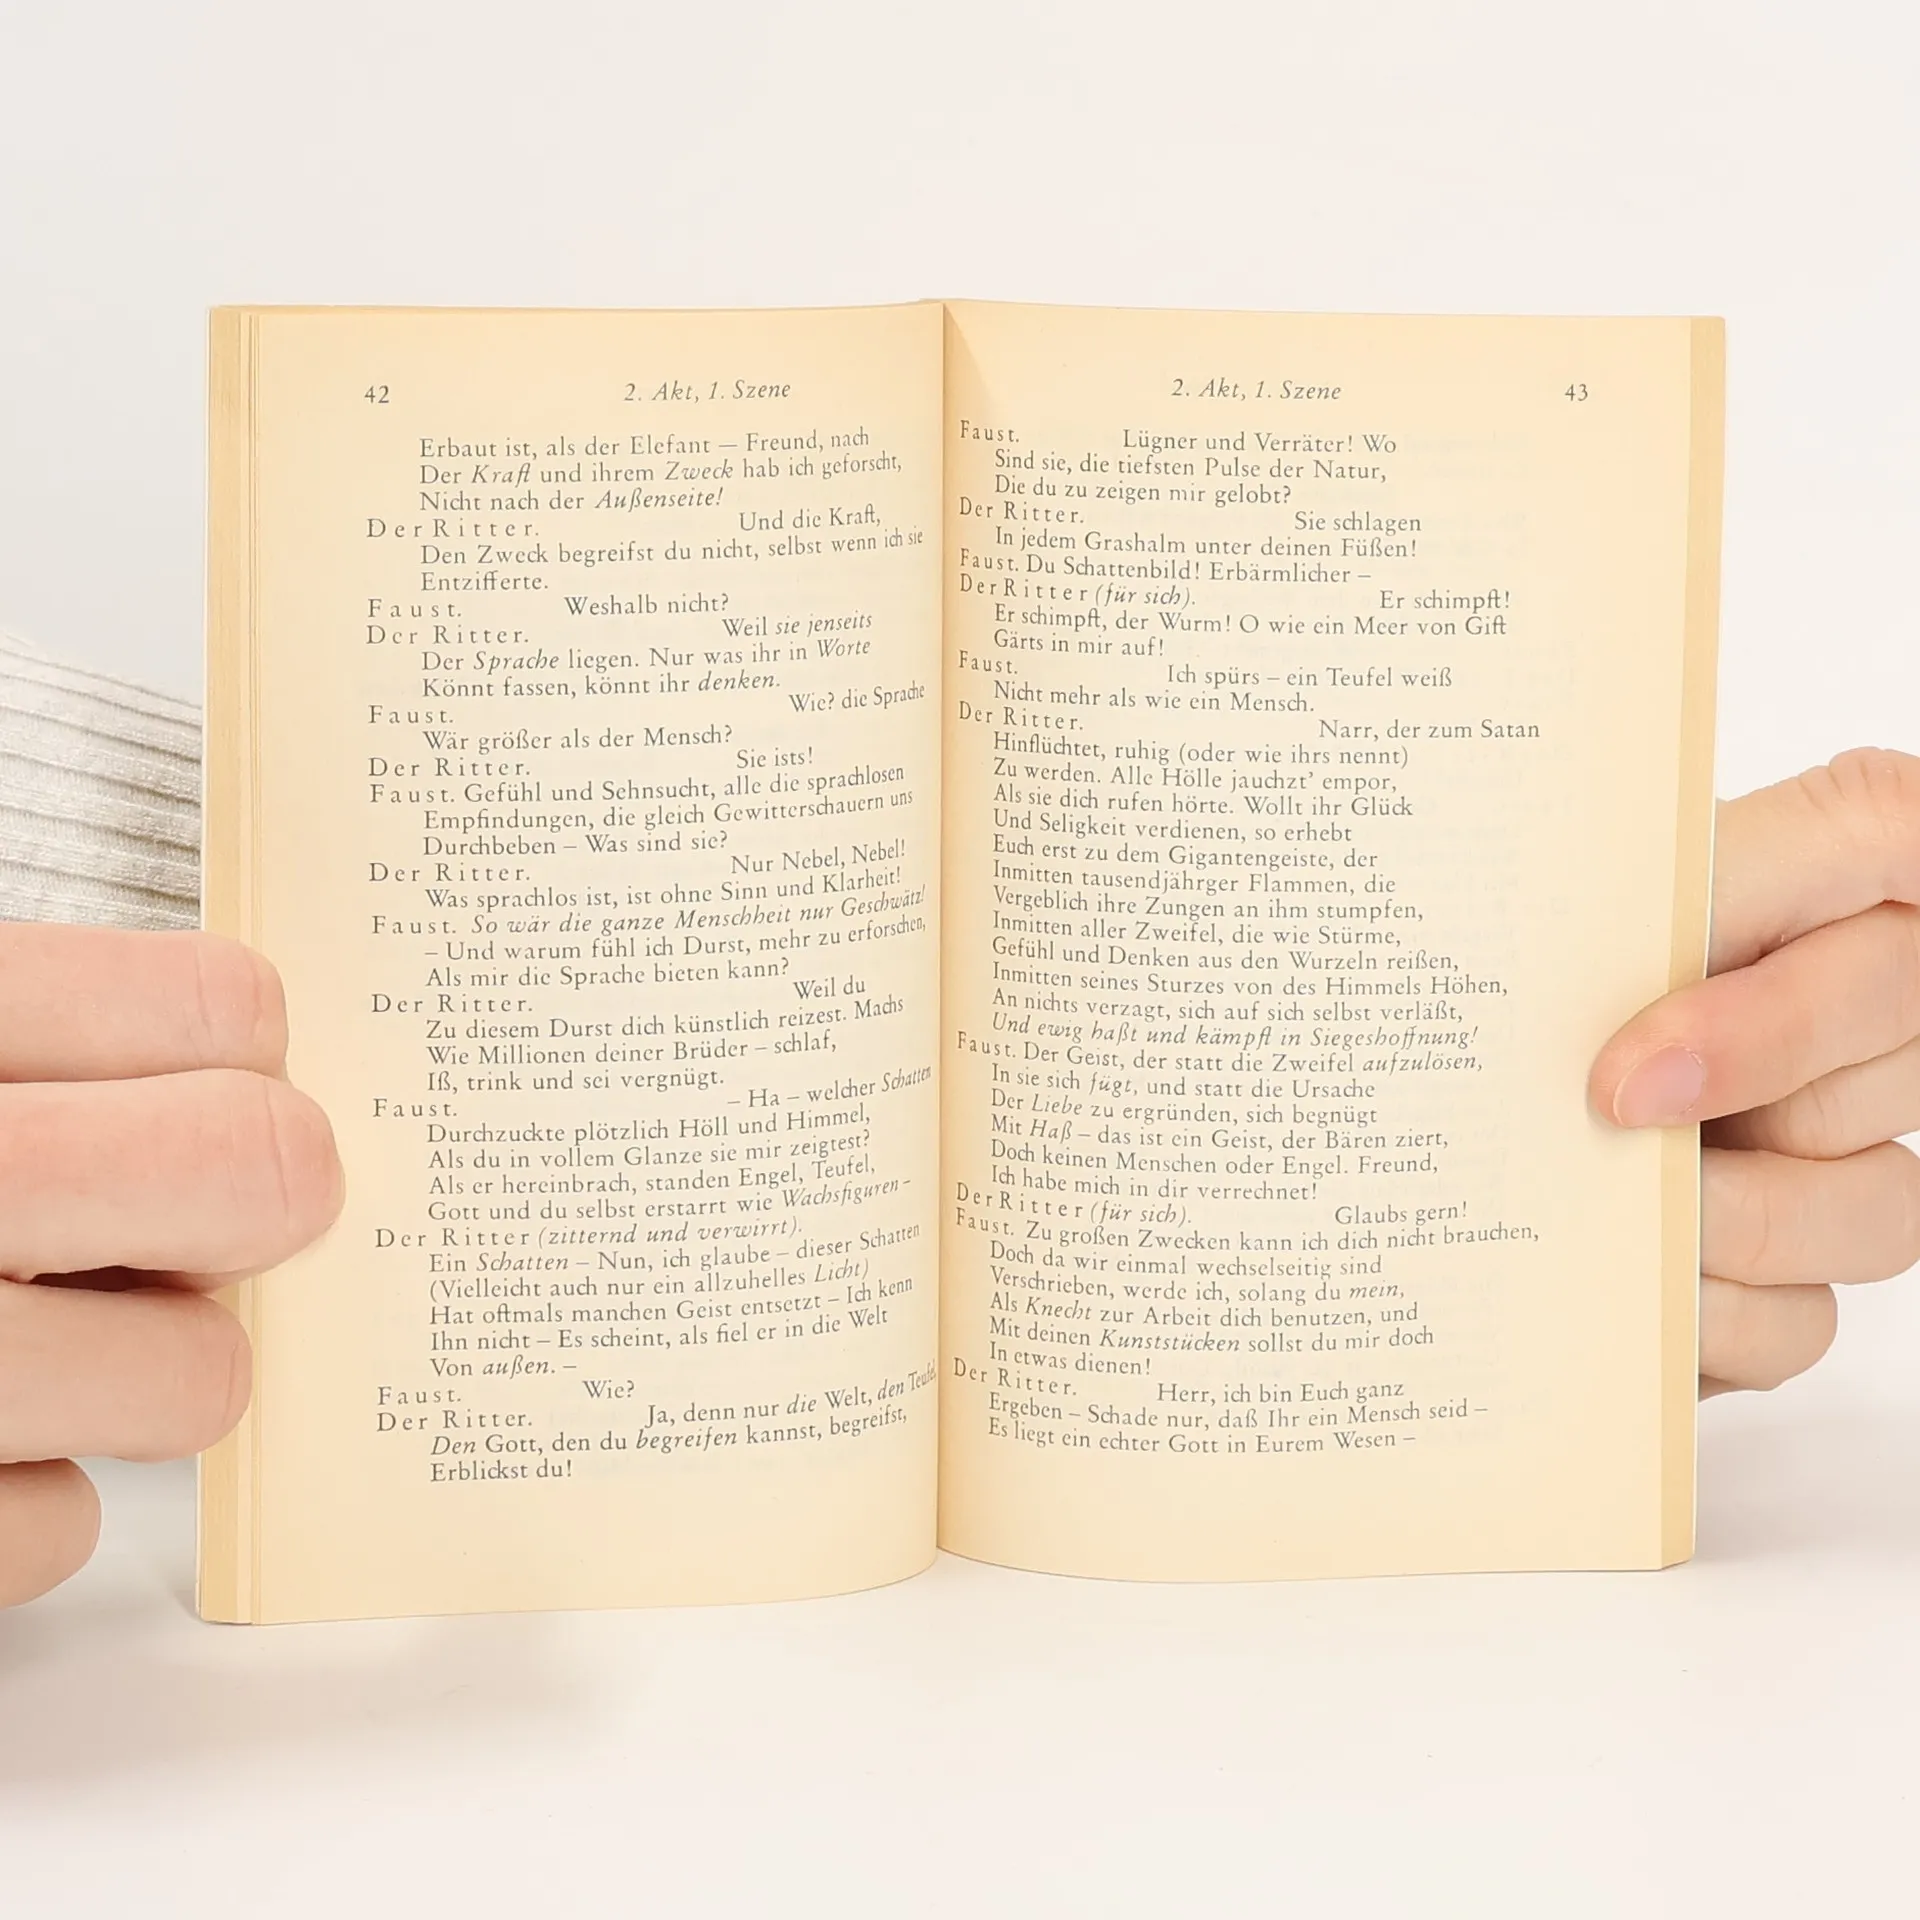 42
2. Akt, 1. Szene
Erbaut ist, als der Elefant — Freund, nach
Der Kraft und ihrem Zweck hab ich geforscht,
Nicht nach der Außenseite!
Der Ritter. Und die Kraft,
Den Zweck begreifst du nicht, selbst wenn ich sie
Entzifferte.
Faust. Weshalb nicht?
Der Ritter. Weil sie jenseits
Der Sprache liegen. Nur was ihr in Worte
Könnt fassen, könnt ihr denken.
Faust. Wie? die Sprache
Wär größer als der Mensch?
Der Ritter. Sie ists!
Faust. Gefühl und Sehnsucht, alle die sprachlosen
Empfindungen, die gleich Gewitterschauern uns
Durchbeben – Was sind sie?
Der Ritter. Nur Nebel, Nebel!
Was sprachlos ist, ist ohne Sinn und Klarheit!
Faust. So wär die ganze Menschheit nur Geschwätz!
– Und warum fühl ich Durst, mehr zu erforschen,
Als mir die Sprache bieten kann?
Der Ritter. Weil du
Zu diesem Durst dich künstlich reizest. Machs
Wie Millionen deiner Brüder – schlaf,
Iß, trink und sei vergnügt.
Faust. – Ha – welcher Schatten
Durchzuckte plötzlich Höll und Himmel,
Als du in vollem Glanze sie mir zeigtest?
Als er hereinbrach, standen Engel, Teufel,
Gott und du selbst erstarrt wie Wachsfiguren –
Der Ritter (zitternd und verwirrt).
Ein Schatten – Nun, ich glaube – dieser Schatten
(Vielleicht auch nur ein allzuhelles Licht)
Hat oftmals manchen Geist entsetzt – Ich kenn
Ihn nicht – Es scheint, als fiel er in die Welt
Von außen. –
Faust. Wie?
Der Ritter. Ja, denn nur die Welt, den Teufel,
Den Gott, den du begreifen kannst, begreifst,
Erblickst du!
2. Akt, 1. Szene
43
Faust. Lügner und Verräter! Wo
Sind sie, die tiefsten Pulse der Natur,
Die du zu zeigen mir gelobt?
Der Ritter. Sie schlagen
In jedem Grashalm unter deinen Füßen!
Faust. Du Schattenbild! Erbärmlicher –
Der Ritter (für sich). Er schimpft!
Er schimpft, der Wurm! O wie ein Meer von Gift
Gärts in mir auf!
Faust. Ich spürs – ein Teufel weiß
Nicht mehr als wie ein Mensch.
Der Ritter. Narr, der zum Satan
Hinflüchtet, ruhig (oder wie ihrs nennt)
Zu werden. Alle Hölle jauchzt’ empor,
Als sie dich rufen hörte. Wollt ihr Glück
Und Seligkeit verdienen, so erhebt
Euch erst zu dem Gigantengeiste, der
Inmitten tausendjährger Flammen, die
Vergeblich ihre Zungen an ihm stumpfen,
Inmitten aller Zweifel, die wie Stürme,
Gefühl und Denken aus den Wurzeln reißen,
Inmitten seines Sturzes von des Himmels Höhen,
An nichts verzagt, sich auf sich selbst verläßt,
Und ewig haßt und kämpft in Siegeshoffnung!
Faust. Der Geist, der statt die Zweifel aufzulösen,
In sie sich fügt, und statt die Ursache
Der Liebe zu ergründen, sich begnügt
Mit Haß – das ist ein Geist, der Bären ziert,
Doch keinen Menschen oder Engel. Freund,
Ich habe mich in dir verrechnet!
Der Ritter (für sich). Glaubs gern!
Faust. Zu großen Zwecken kann ich dich nicht brauchen,
Doch da wir einmal wechselseitig sind
Verschrieben, werde ich, solang du mein,
Als Knecht zur Arbeit dich benutzen, und
Mit deinen Kunststücken sollst du mir doch
In etwas dienen!
Der Ritter. Herr, ich bin Euch ganz
Ergeben – Schade nur, daß Ihr ein Mensch seid –
Es liegt ein echter Gott in Eurem Wesen –